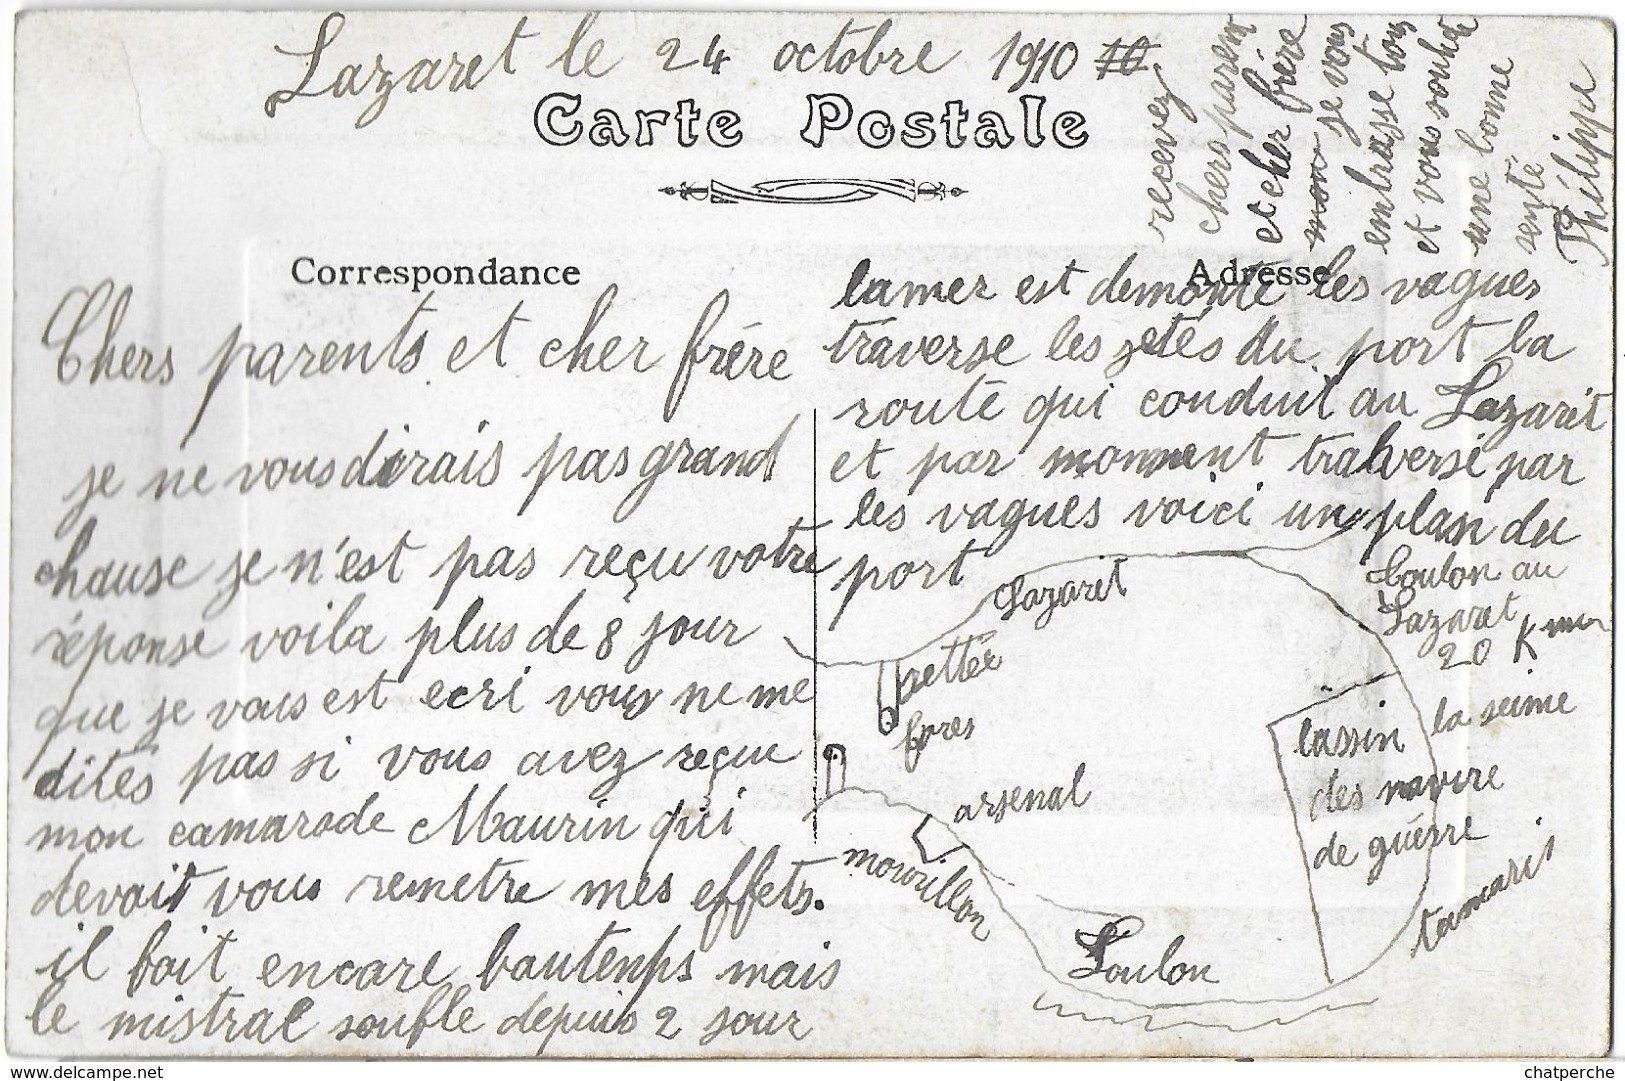 Lazaret le 24 octobre 1910 10
Carte Postale
Correspondance
Adresse
Chers parents et cher frére
je ne vous dirais pas grand
chause je n'est pas reçu votre
réponse voila plus de 8 jour
que je vous est ecri vous ne me
dites pas si vous avez reçue
mon camarade Maurin qui
devait vous remetre mes effets.
il fait encare bautemps mais
le mistral soufle depuis 2 jour
la mer est demonté les vagues
traverse les jetés du port la
route qui conduit au Lazaret
et par moment tralversé par
les vagues voici un plan du
port
Lazaret
Toulon au
Lazaret
20 K
jettée
fares
la seime
bassin
des navire
de guérre
arsenal
mourillon
tamaris
Toulon
recevez
chers parent
et cher frére
mon je vous
embrasse tous
et vous souhte
une bonne
senté
Philippe
www.delcampe.net
chatperche